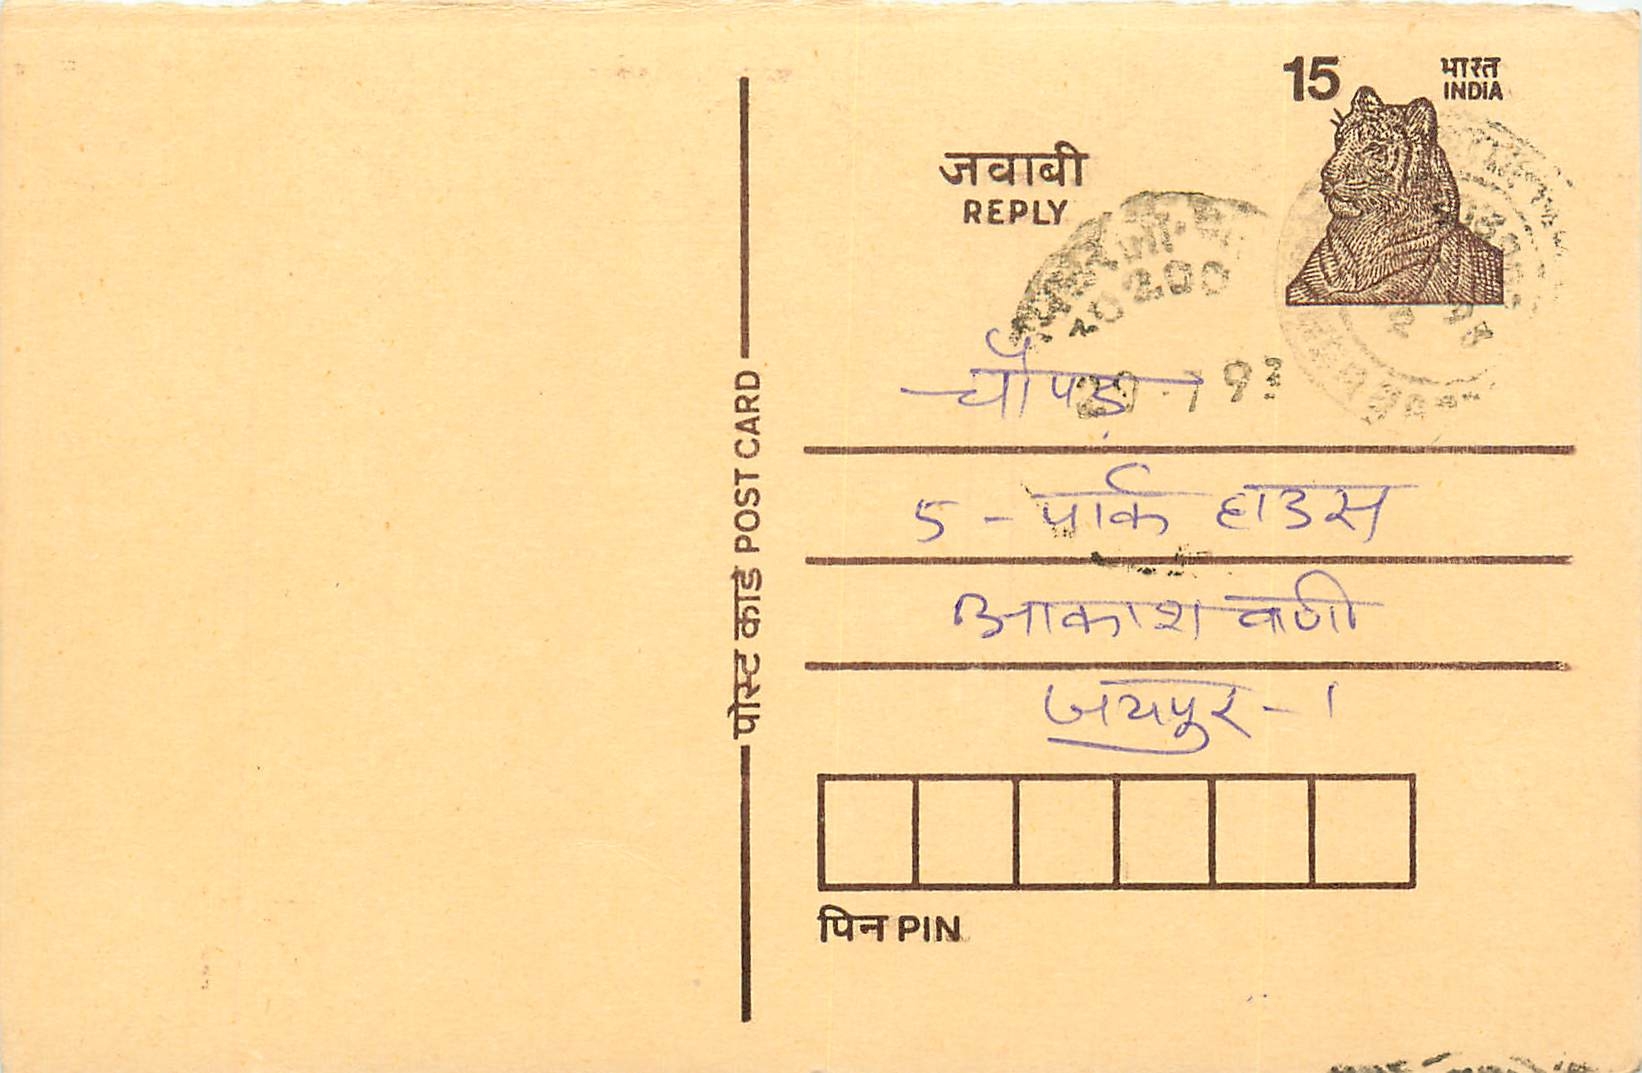 15
भारत
INDIA
जवाबी
REPLY
चौपड़ा
5 - पार्क हाउस
आकाशवाणी
जयपुर - 1
पोस्ट कार्ड POST CARD
पिन PIN